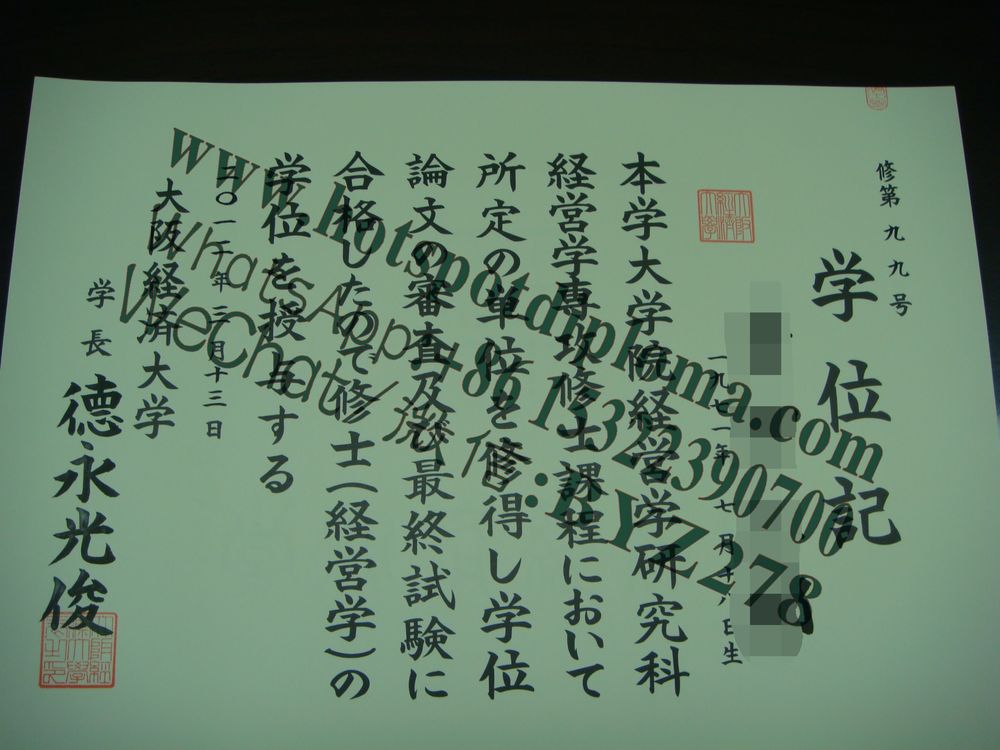 修第九九号
学位記
一九七一年七月十八日生
本学大学院経営学研究科
経営学専攻修士課程において
所定の単位を修得し学位
論文の審査及び最終試験に
合格したので修士(経営学)の
学位を授与する
年三月十三日
大阪経済大学
学長 德永光俊
www.hotspotdiploma.com
WhatsApp:+86 19322390700
Wechat/微信:RYZ278